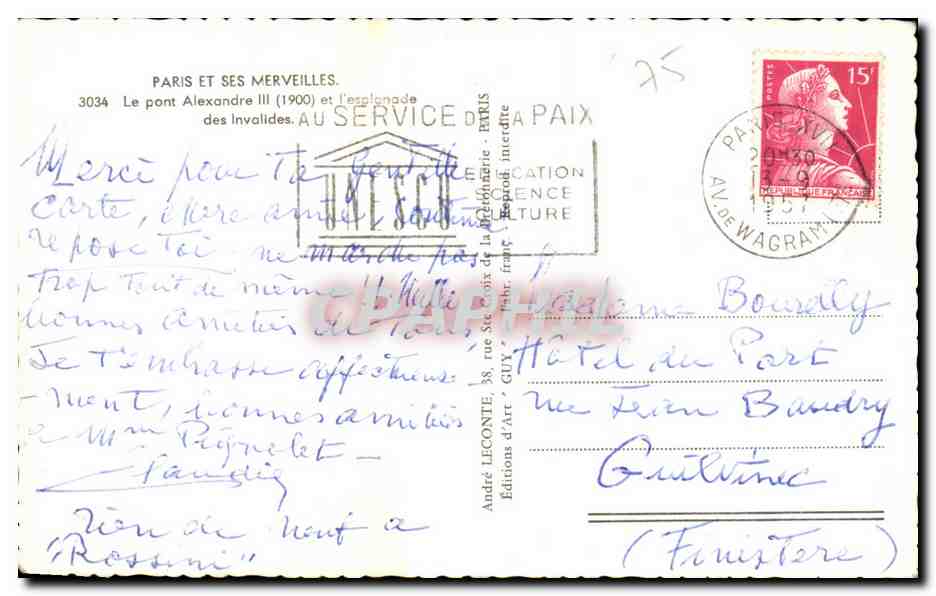 75
PARIS ET SES MERVEILLES.
3034 Le pont Alexandre III (1900) et l'esplanade
des Invalides.
AU SERVICE DE LA PAIX
UNESCO
EDUCATION
SCIENCE
CULTURE
POSTES
15F
REPUBLIQUE FRANCAISE
PARIS XVII
20H30
13-9
1957
AV. DE WAGRAM
Merci pour ta gentille
carte, chère amie, continue
repose toi - ne marche pas
trop tout de même !! Mille
bonnes amitiés de tous,
Je t'embrasse affectueuse-
-ment, bonnes amitiés
a Mme Pignelet -
Claudie
rien de neuf a
"Rossini"
André LECONTE, 38, rue Ste Croix de la Bretonnerie - PARIS
Éditions d'Art "GUY" Fabr. franç. - Reprod. interdite
CPAPHIL
Madame Bourdly
Hôtel du Port
rue Jean Baudry
Guilvinec
(Finistere)